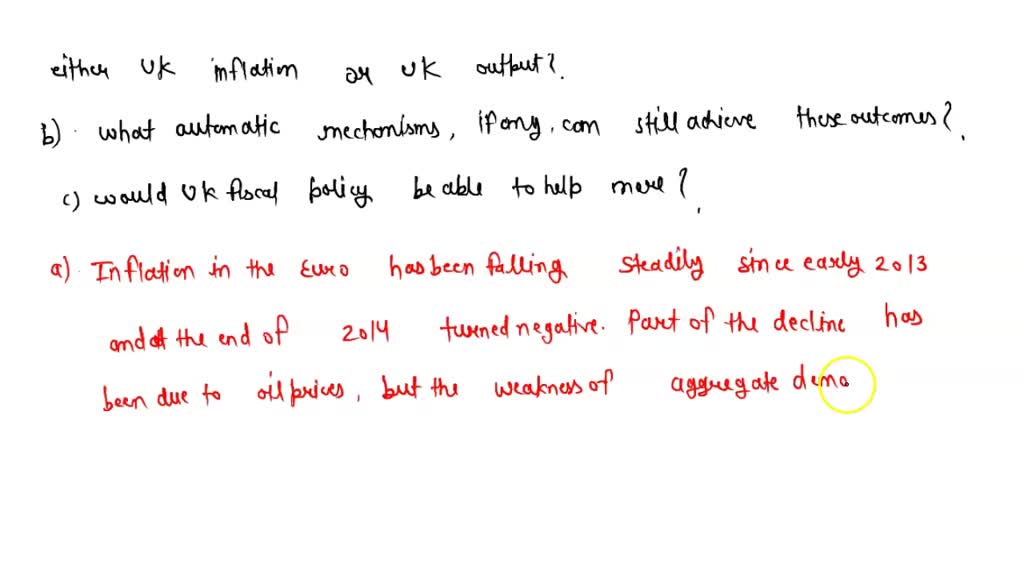 either UK inflation or UK output?.
b) what automatic mechonisms, if any, can still achieve these outcomes?.
c) would UK fiscal policy be able to help more?.
a) Inflation in the Euro has been falling steadily since early 2013
and at the end of 2014 turned negative. Part of the decline has
been due to oil prices, but the weakness of aggregate dema